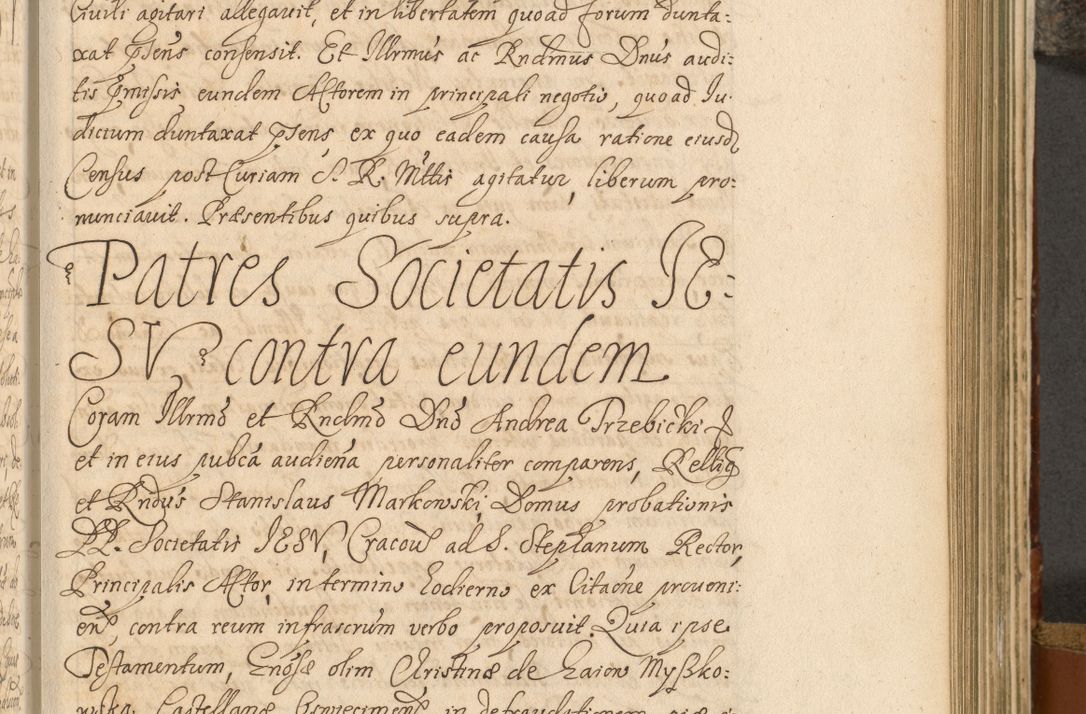 Civili agitari allegavit, et in libertatem quoad forum dunta:
xat pñsens consensit. Et Illrmus ac Rndmus Dnus audi:
tis pmissis eundem Actorem in principali negotio, quoad Ju-
dicium duntaxat pñsens, ex quo eadem causa ratione eiusd
Census post Curiam S. R. Mttis agitatur, liberum pro:
nunciavit. Præsentibus quibus supra.
Patres Societatis IE:
SV contra eundem
Coram Illrmo et Rndmo Dno Andrea Trzebicki
et in eius pubca audiena personaliter comparens, Rellig
et Rndus Stanislaus Markowski, Domus probationis
PP. Societatis IESV, Cracov ad S. Stephanum Rector,
Principalis Actor, in termino hodierno ex Citaone proveni:
en, contra reum infrascrum verbo proposuit. Quia ipse
Testamentum, Gnosæ olim Christinæ de Zaiow Myszko:
wska, Castellanæ Osviecimens, in defraudationem